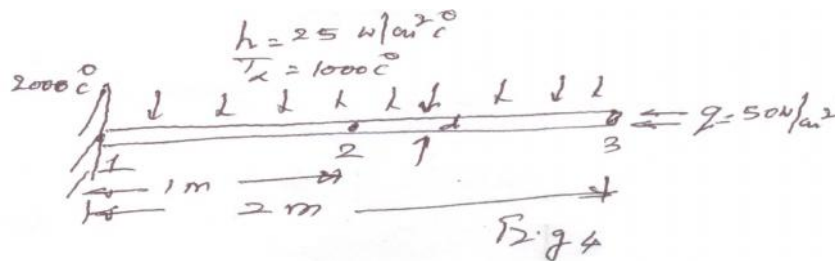 h = 25 w/cm² c°
T∝ = 1000c°
2000c°
q = 50w/cm²
d
1
2
3
1m
2 m
Fig 4